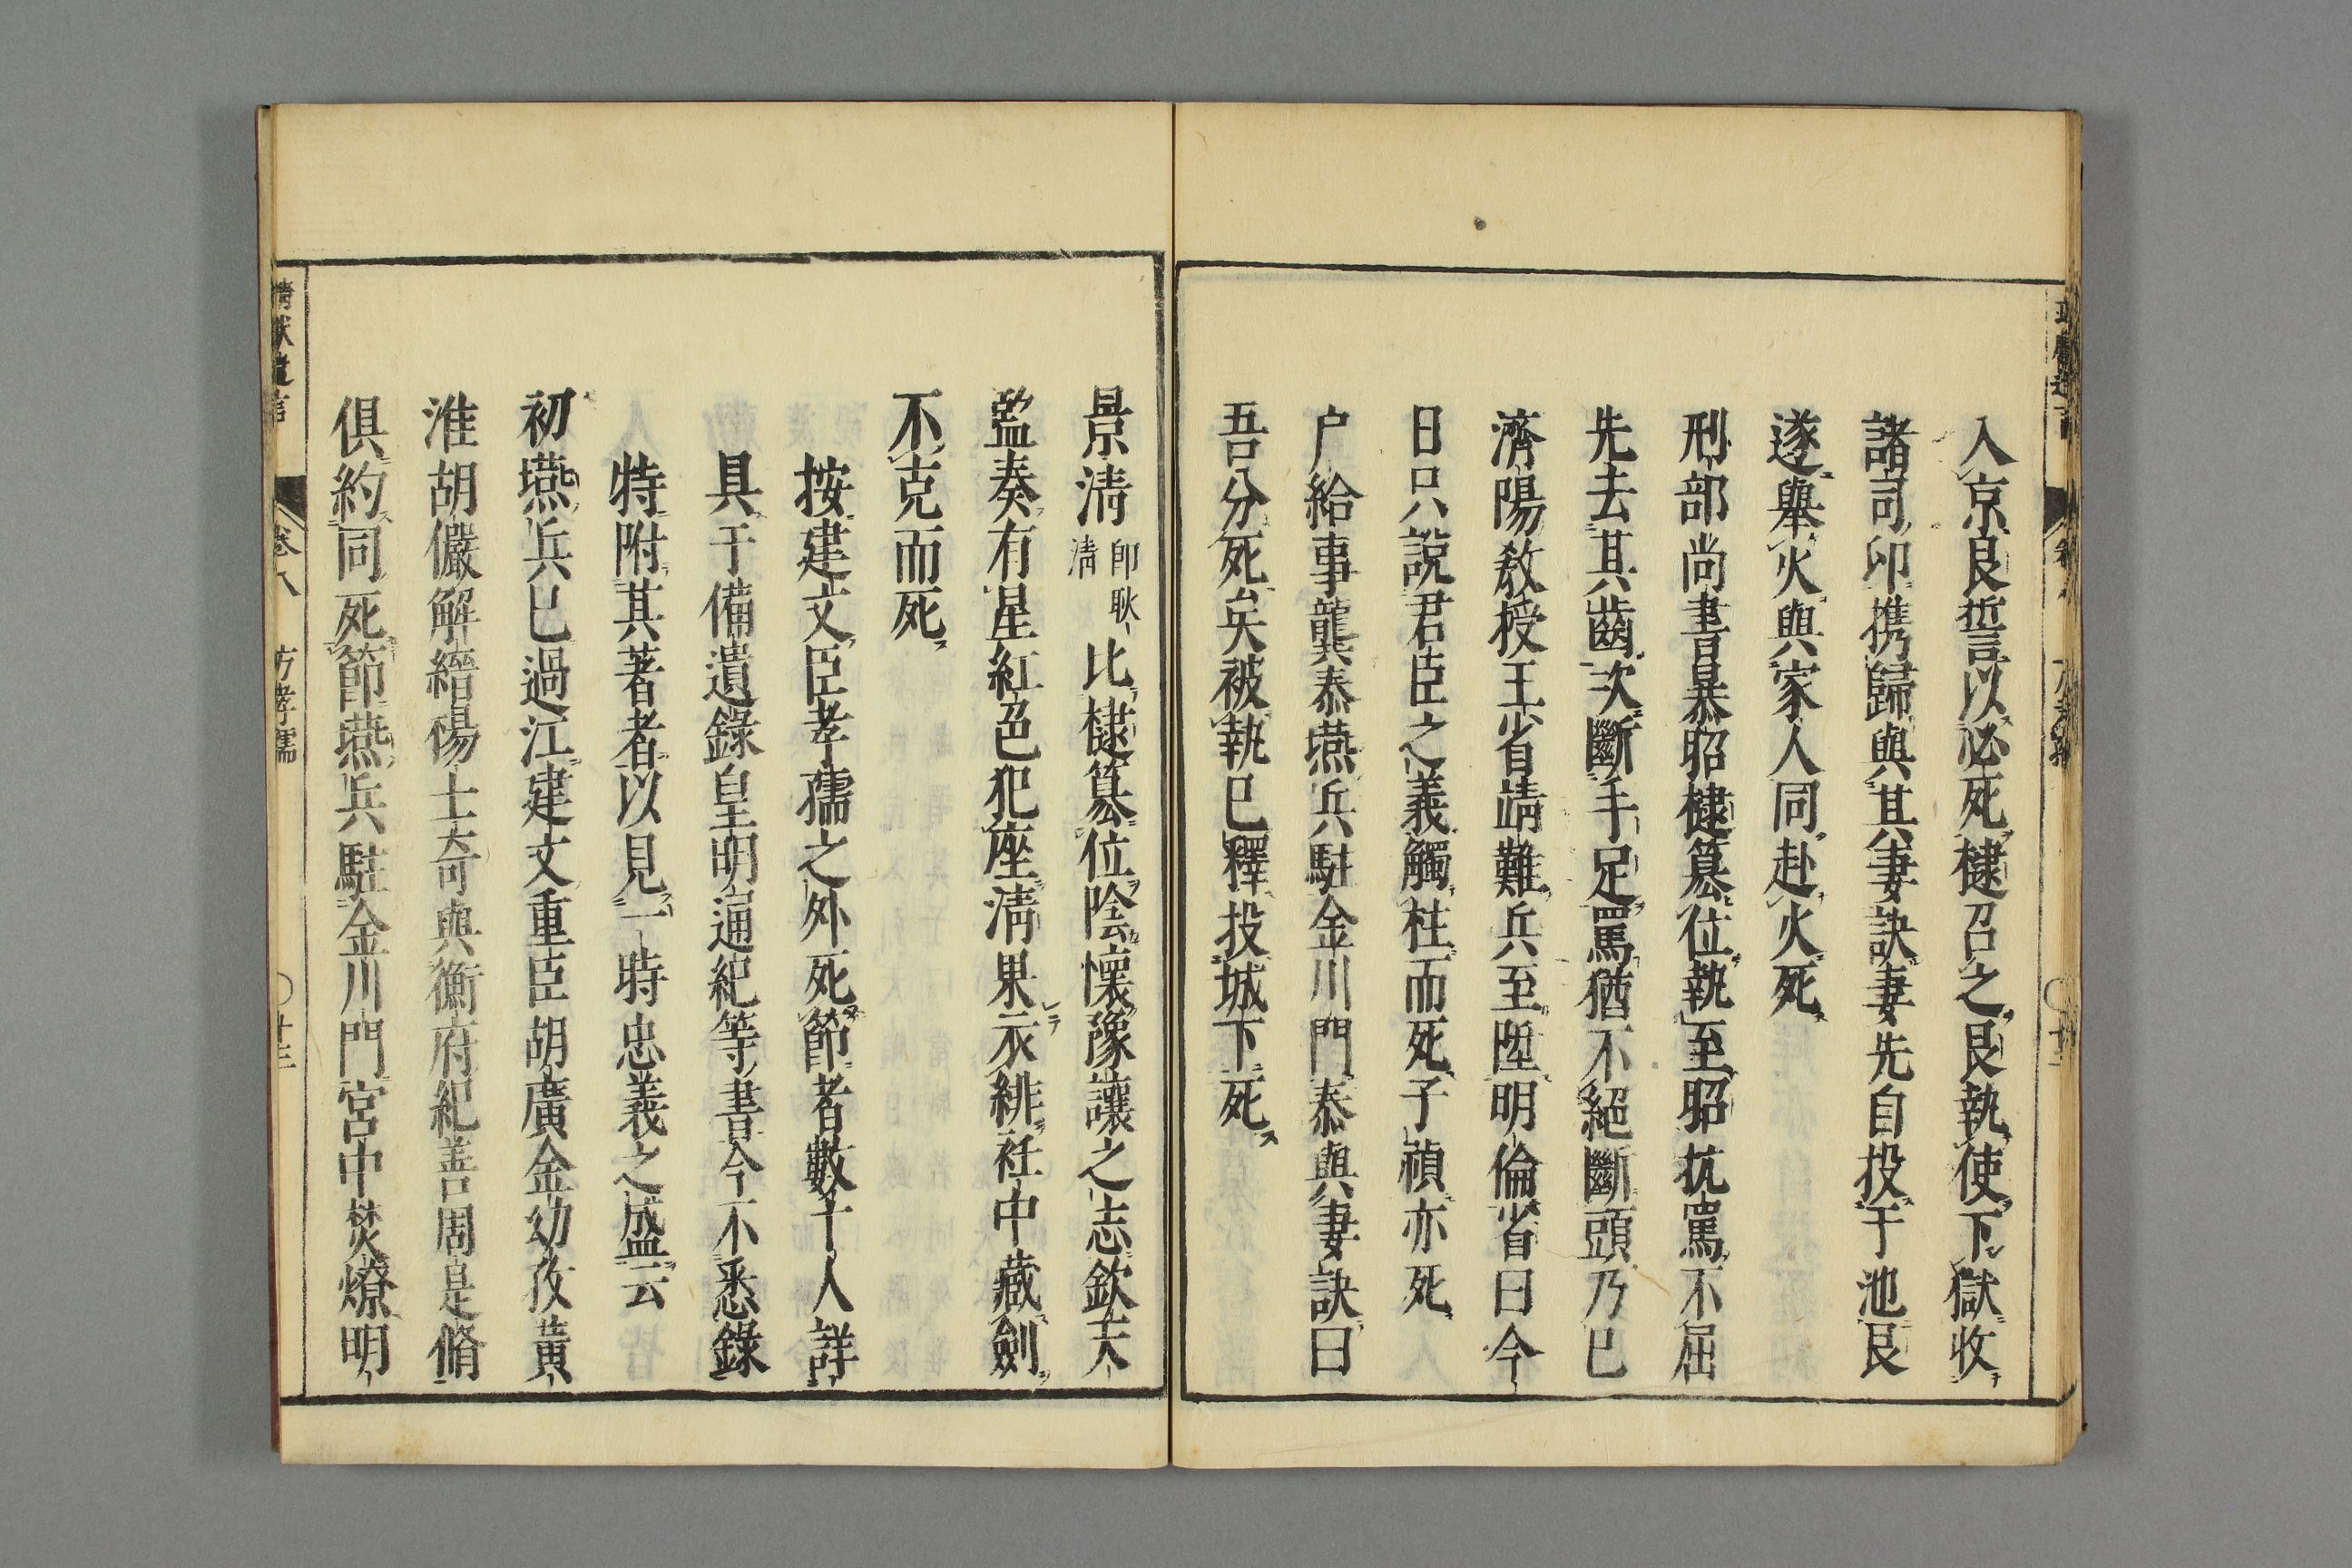 入京良誓以必死棣召之良執使下獄收
諸司印携歸與其妻訣妻先自投于池良
遂舉火與家人同赴火死
刑部尚書暴昭棣簒位執至昭抗罵不屈
先去其齒次斷手足罵猶不絕斷頭乃已
濟陽敎授王省靖難兵至陞明倫省曰今
日只說君臣之義觸柱而死子禎亦死
户給事龔泰燕兵駐金川門泰與妻訣曰
吾分死矣被執已釋投城下死
景清即耿清比棣簒位陰懷豫讓之志欽天
監奏有星紅色犯座清果衣緋衽中藏劍
不克而死
按建文臣孝孺之外死節者數十人詳
具于備遺錄皇明通紀等書今不悉錄
特附其著者以見一時忠義之盛云
初燕兵已過江建文重臣胡廣金幼孜黃
淮胡儼解縉楊士奇與衡府紀善周是脩
俱約同死節燕兵駐金川門宮中焚燎明
靖獻遺言
卷八
方孝孺
十三